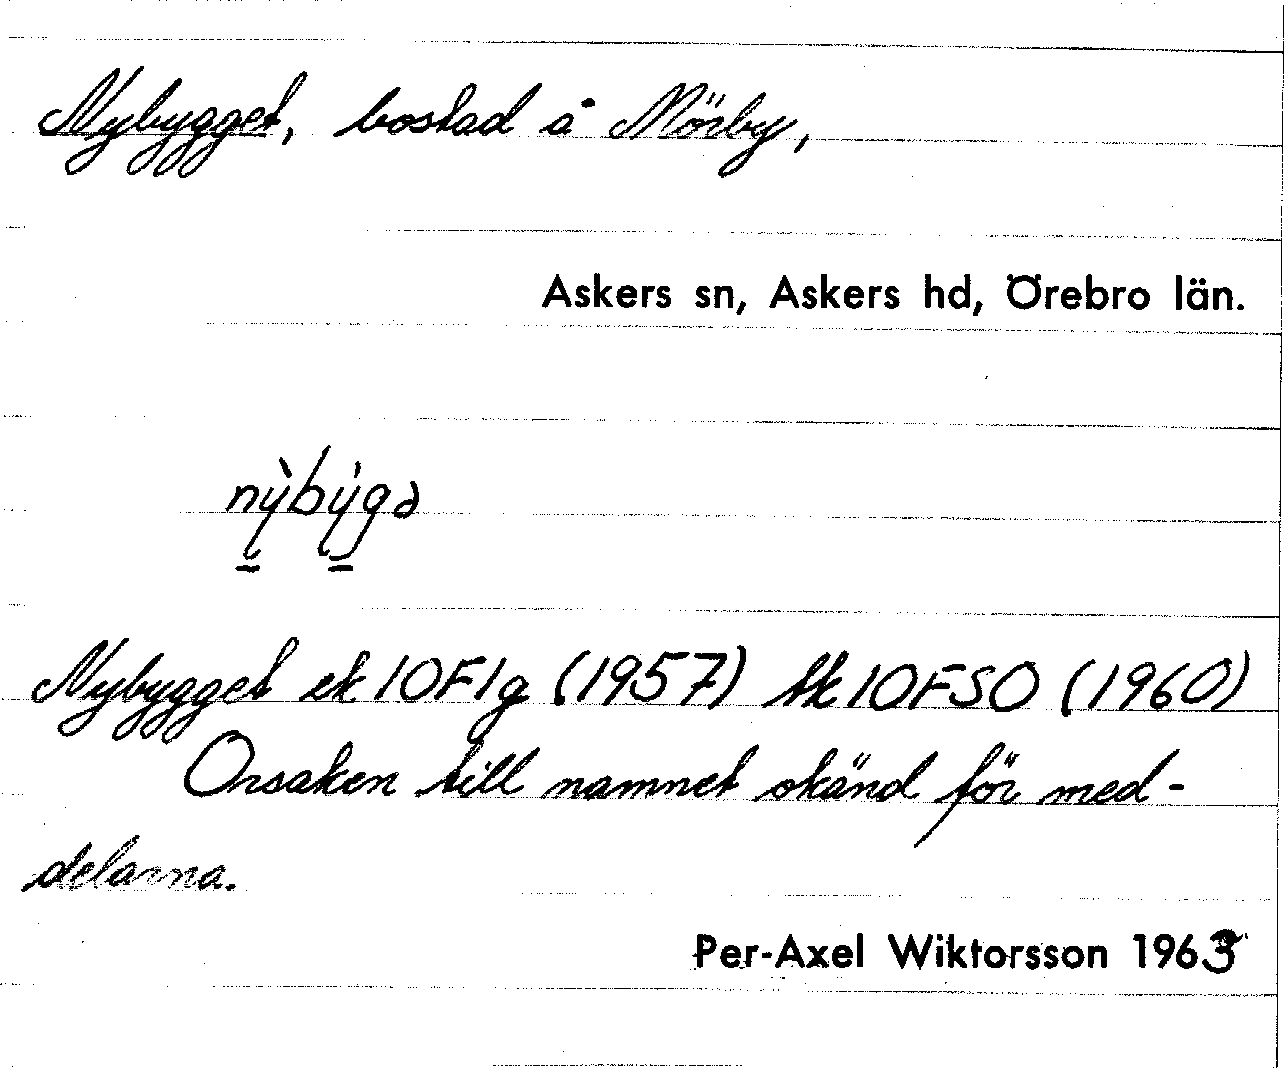 Nybygget, bostad å Mörby,
Askers sn, Askers hd, Örebro län.
nỳbýgə
Nybygget ek 10F1g (1957) tk 10FSO (1960)
Orsaken till namnet okänd för med-
delarna.
Per-Axel Wiktorsson 1963